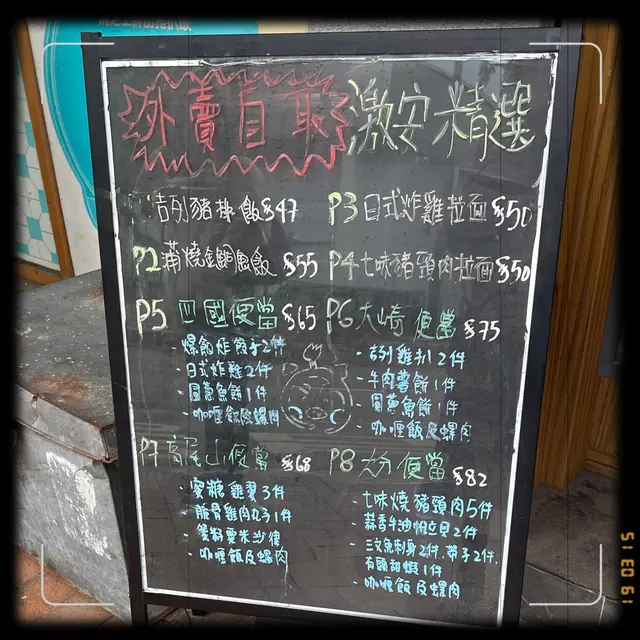 外賣自取 激安精選
吉列豬排飯 $47
P3 日式炸雞拉面 $50
P2 蒲燒金鯛魚飯 $55
P4 七味豬頸肉拉面 $50
P5 四國便當 $65
爆餡炸餃子2件
・日式炸雞2件
・圓黄魚餅1件
・咖喱飯及螺肉
P6 大崎便當 $75
・吉列雞扒2件
・牛肉薯餅1件
・圓黄魚餅1件
・咖喱飯及螺肉
P7 高尾山便當 $68
・蜜糖雞翼3件
・脆骨雞肉丸子1件
・蟹籽粟米沙律
・咖喱飯及螺肉
P8 大分便當 $82
・七味燒豬頸肉5件
・蒜香牛油帆立貝2件
・三文魚刺身2件、帶子2件、
有頭甜蝦1件
・咖喱飯及螺肉